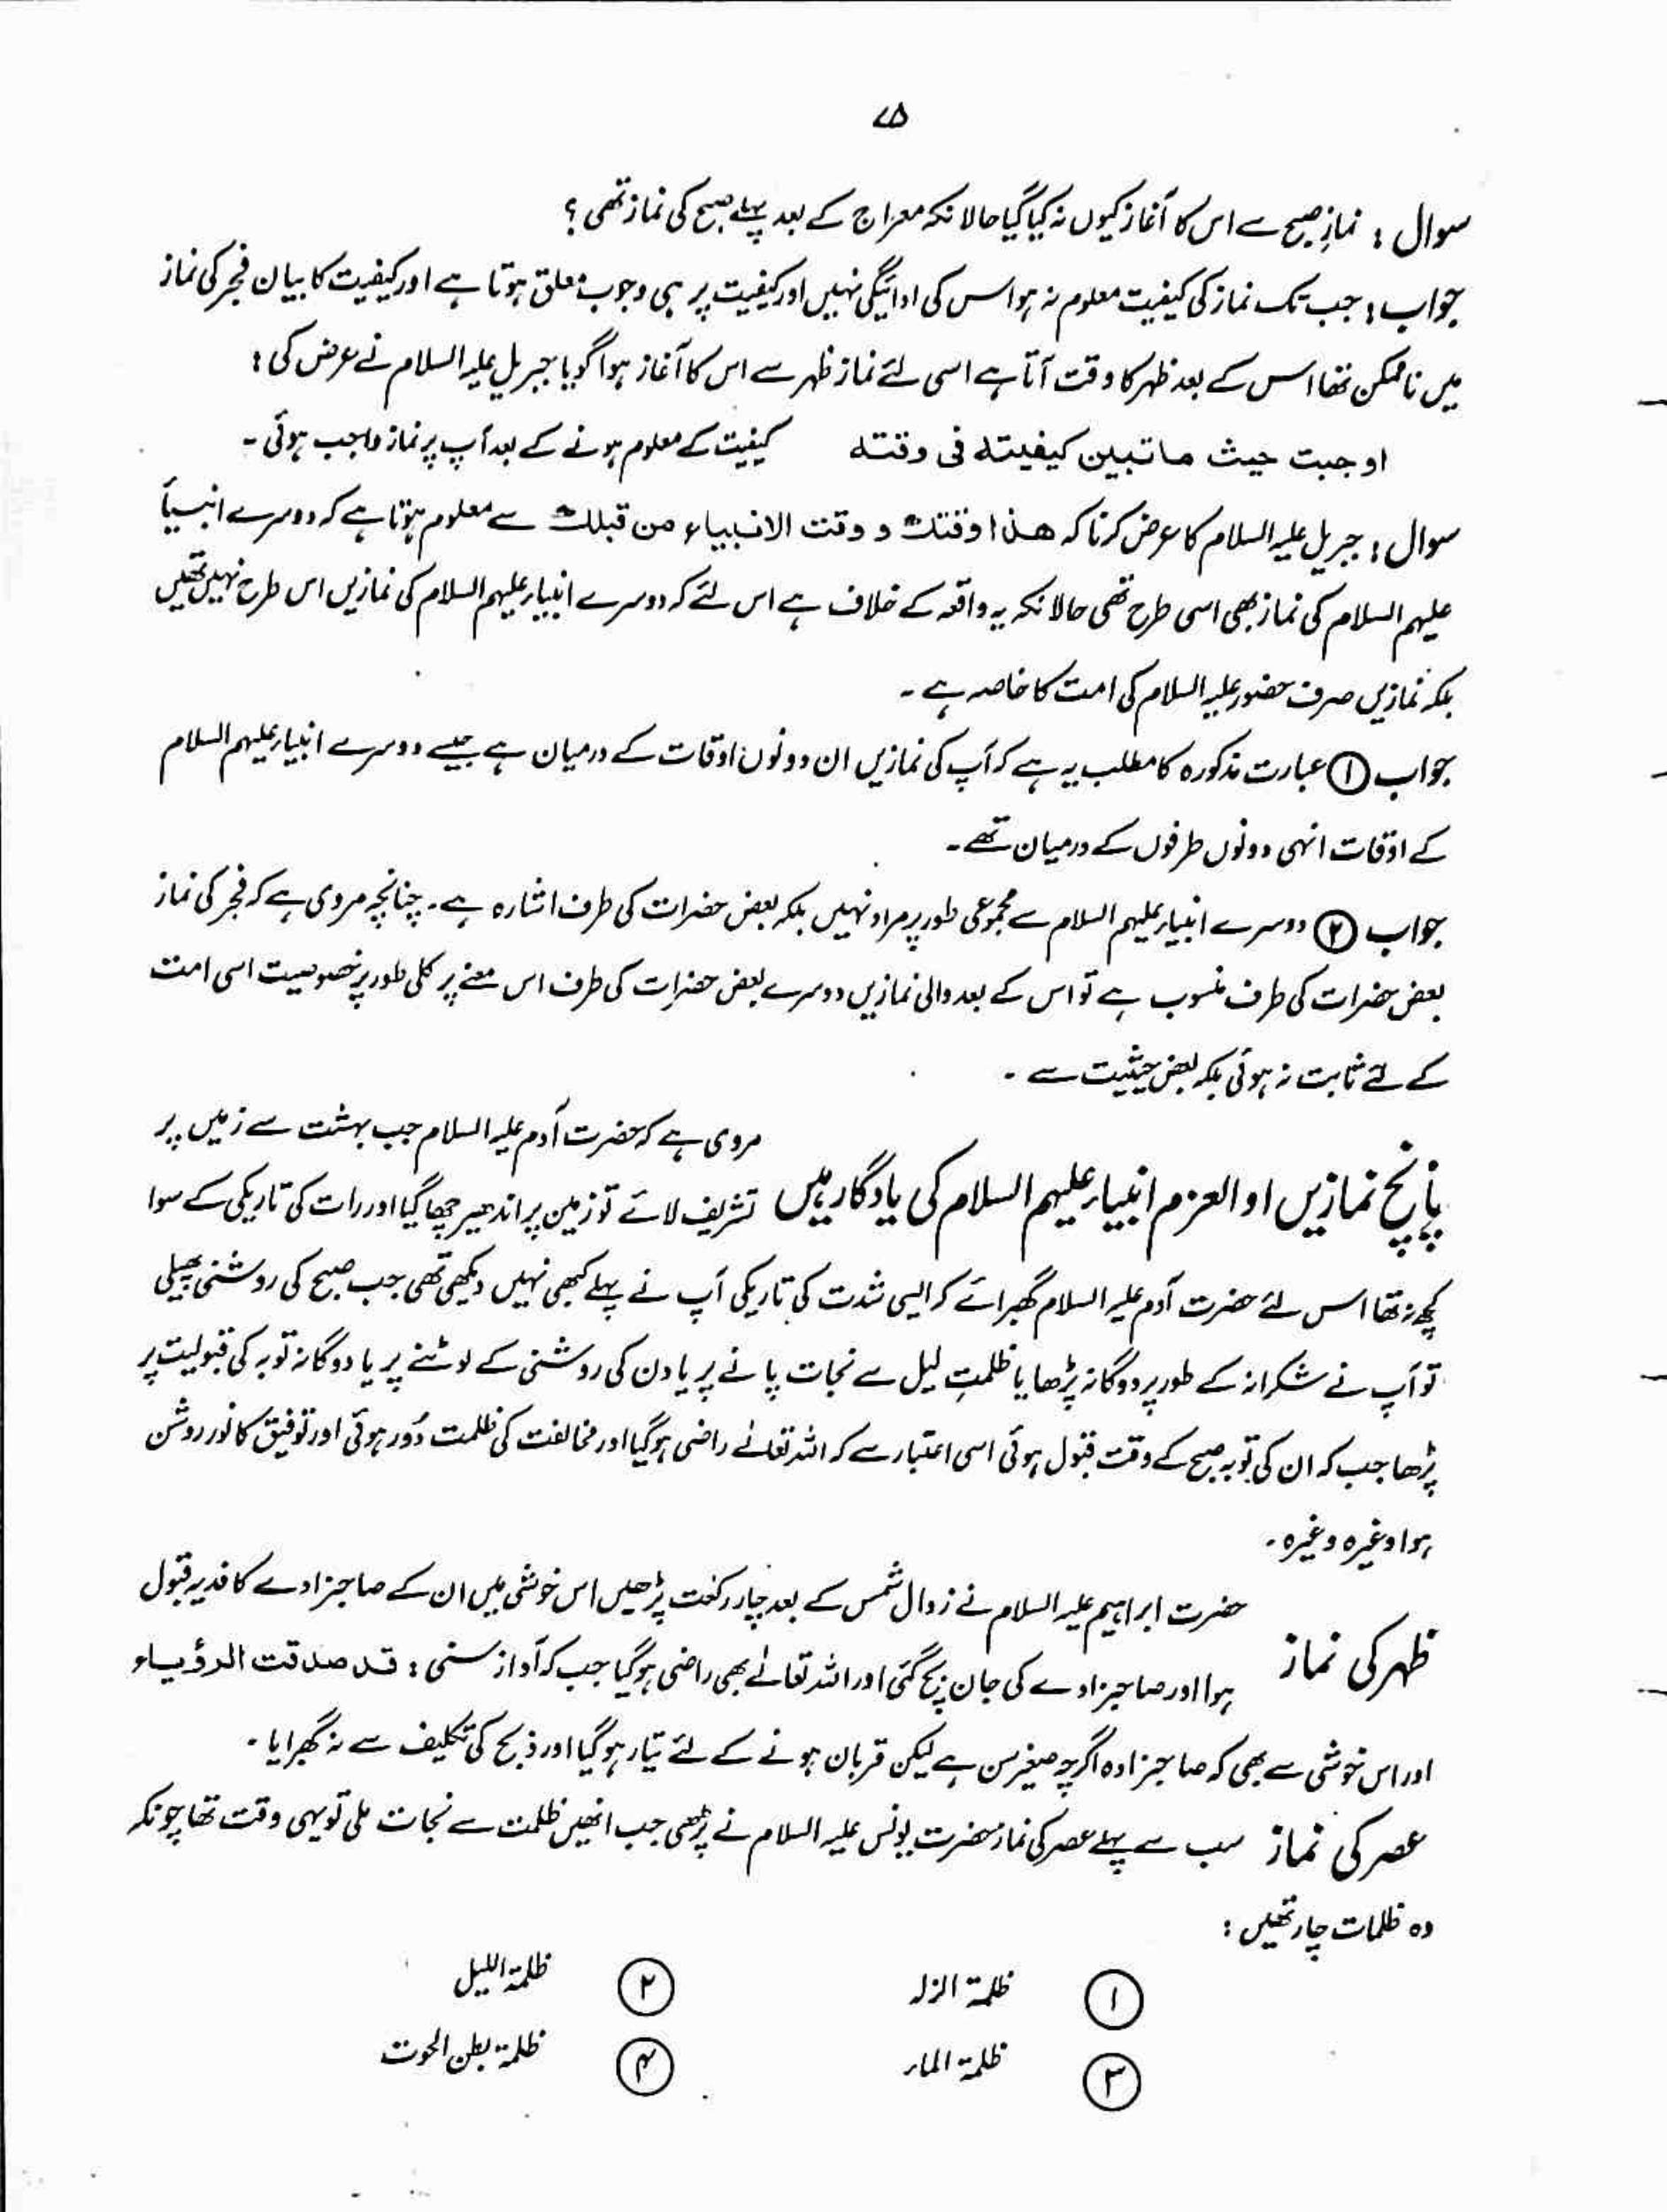 ۷۵
سوال : نمازِ صبح سے اس کا آغاز کیوں نہ کیا گیا حالانکہ معراج کے بعد پہلے صبح کی نماز تھی ؟
جواب : جب تک نماز کی کیفیت معلوم نہ ہو اس کی ادائیگی نہیں اور کیفیت پر ہی وجوب معلق ہوتا ہے اور کیفیت کا بیان فجر کی نماز
میں ناممکن تھا اس کے بعد ظہر کا وقت آتا ہے اسی لئے نماز ظہر سے اس کا آغاز ہوا گویا جبریل علیہ السلام نے عرض کی :
اوجبت حیث ماتبین کیفیتہ فی وقتہ کیفیت کے معلوم ہونے کے بعد آپ پر نماز واجب ہوئی ۔
سوال : جبریل علیہ السلام کا عرض کرنا کہ ھذا وقتک و وقت الانبیاء من قبلک سے معلوم ہوتا ہے کہ دوسرے انبیأ
علیہم السلام کی نماز بھی اسی طرح تھی حالانکہ یہ واقعہ کے خلاف ہے اس لئے کہ دوسرے انبیاء علیہم السلام کی نمازیں اس طرح نہیں تھیں
بلکہ نمازیں صرف حضور علیہ السلام کی امت کا خاصہ ہے ۔
جواب ① عبارت مذکورہ کا مطلب یہ ہے کہ آپ کی نمازیں ان دونوں اوقات کے درمیان ہے جیسے دوسرے انبیاء علیہم السلام
کے اوقات انہی دونوں طرفوں کے درمیان تھے ۔
جواب ② دوسرے انبیاء علیہم السلام سے مجموعی طور پر مراد نہیں بلکہ بعض حضرات کی طرف اشارہ ہے ۔ چنانچہ مروی ہے کہ فجر کی نماز
بعض حضرات کی طرف منسوب ہے تو اس کے بعد والی نمازیں دوسرے بعض حضرات کی طرف اس معنے پر کلی طور پر خصوصیت اسی امت
کے لئے ثابت نہ ہوئی بلکہ بعض حیثیت سے ۔
مروی ہے کہ حضرت آدم علیہ السلام جب بہشت سے زمین پر
پانچ نمازیں اوالعزم انبیاء علیہم السلام کی یادگار ہیں تشریف لائے تو زمین پر اندھیر چھا گیا اور رات کی تاریکی کے سوا
کچھ نہ تھا اس لئے حضرت آدم علیہ السلام گھبرائے کہ ایسی شدت کی تاریکی آپ نے پہلے کبھی نہیں دیکھی تھی جب صبح کی روشنی پھیلی
تو آپ نے شکرانہ کے طور پر دوگانہ پڑھا یا ظلمتِ لیل سے نجات پانے پر یا دن کی روشنی کے لوٹنے پر یا دوگانہ توبہ کی قبولیت پر
پڑھا جب کہ ان کی توبہ صبح کے وقت قبول ہوئی اسی اعتبار سے کہ اللہ تعالےٰ راضی ہوگیا اور مخالفت کی ظلمت دُور ہوئی اور توفیق کا نور روشن
ہوا وغیرہ وغیرہ ۔
حضرت ابراہیم علیہ السلام نے زوال شمس کے بعد چار رکعت پڑھیں اس خوشی میں ان کے صاحبزادے کا فدیہ قبول
ظہر کی نماز ہوا اور صاحبزادے کی جان بچ گئی اور اللہ تعالےٰ بھی راضی ہوگیا جب کہ آواز سنی : قد صدقت الرؤیاء
اور اس خوشی سے بھی کہ صاحبزادہ اگرچہ صغیر سن ہے لیکن قربان ہونے کے لئے تیار ہوگیا اور ذبح کی تکلیف سے نہ گھبرایا ۔
عصر کی نماز سب سے پہلے عصر کی نماز حضرت یونس علیہ السلام نے پڑھی جب انھیں ظلمت سے نجات ملی تو یہی وقت تھا چونکہ
وہ ظلمات چار تھیں :
① ظلمۃ الزلہ ② ظلمۃ اللیل
③ ظلمۃ الماء ④ ظلمۃ بطن الحوت